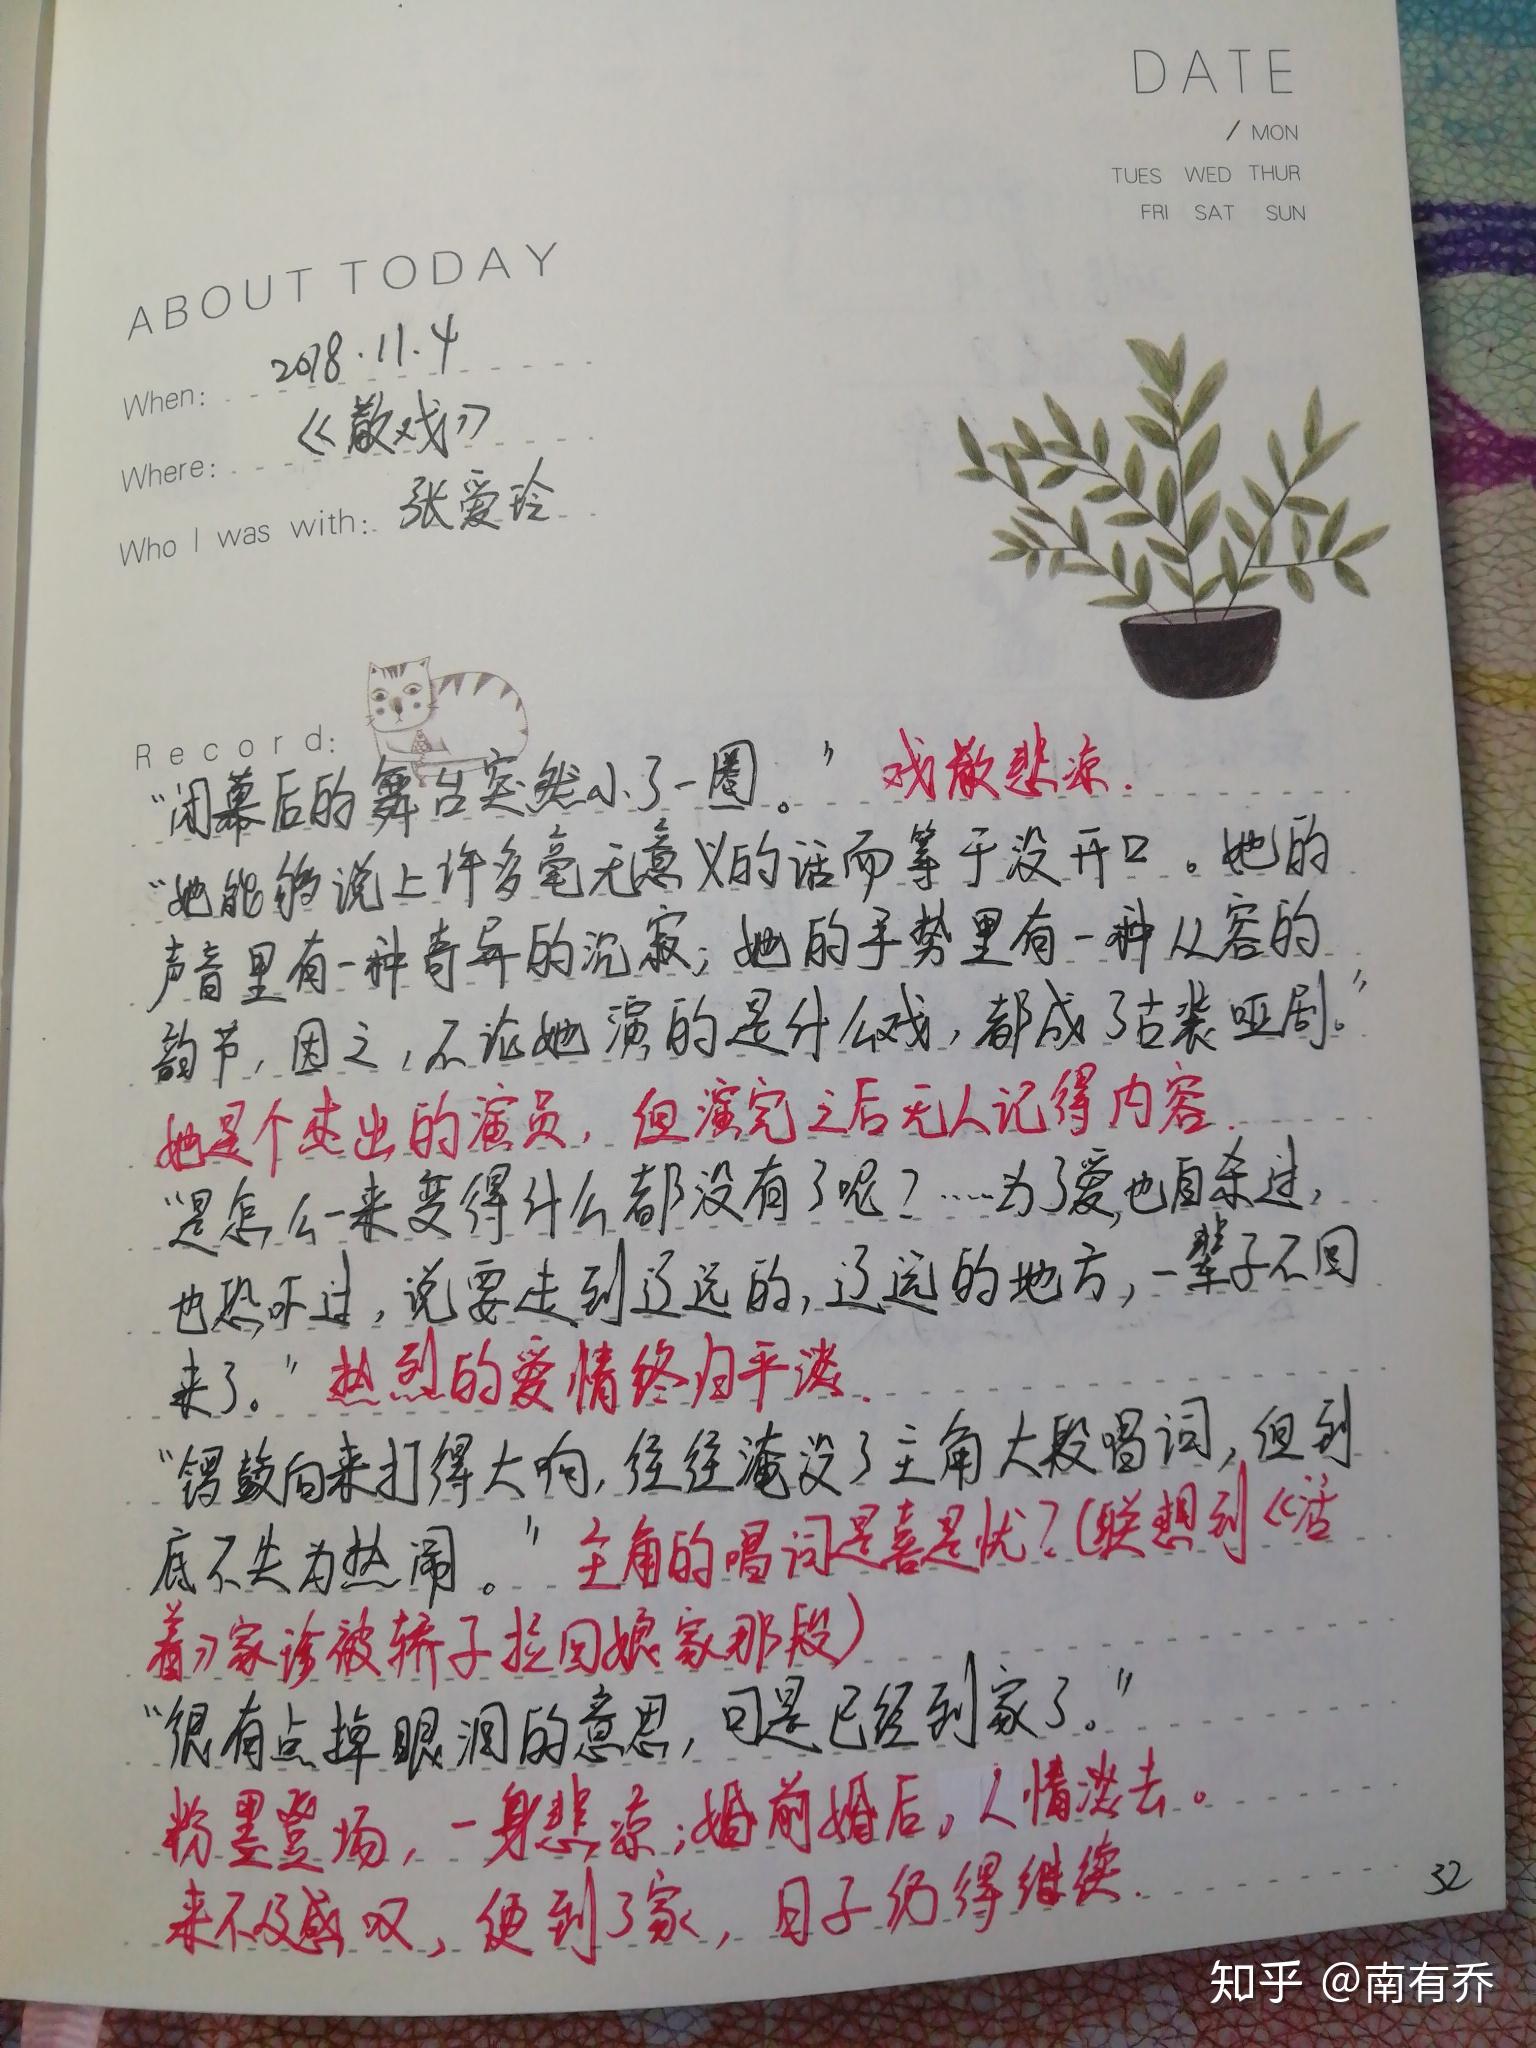 DATE
/ MON
TUES WED THUR
FRI SAT SUN
ABOUT TODAY
When: 2018.11.4
Where: 《散戏》
Who I was with: 张爱玲
Record:
“闭幕后的舞台突然小了一圈。” 戏散悲凉.
“她能够说上许多毫无意义的话而等于没开口。她的
声音里有一种奇异的沉寂；她的手势里有一种从容的
韵节，因之，不论她演的是什么戏，都成了古装哑剧。”
她是个杰出的演员，但演完之后无人记得内容.
“是怎么一来变得什么都没有了呢？……为了爱，也自杀过，
也恐吓过，说要走到辽远的，辽远的地方，一辈子不回
来了。” 热烈的爱情终归平淡.
“锣鼓向来打得大响，往往淹没了主角大段唱词，但到
底不失为热闹。” 主角的唱词是喜是忧？（联想到《活
着》家珍被轿子拉回娘家那段）
“很有点掉眼泪的意思，可是已经到家了。”
粉墨登场，一身悲凉；婚前婚后，人情淡去。
来不及感叹，便到了家，日子仍得继续.
32
知乎 @南有乔